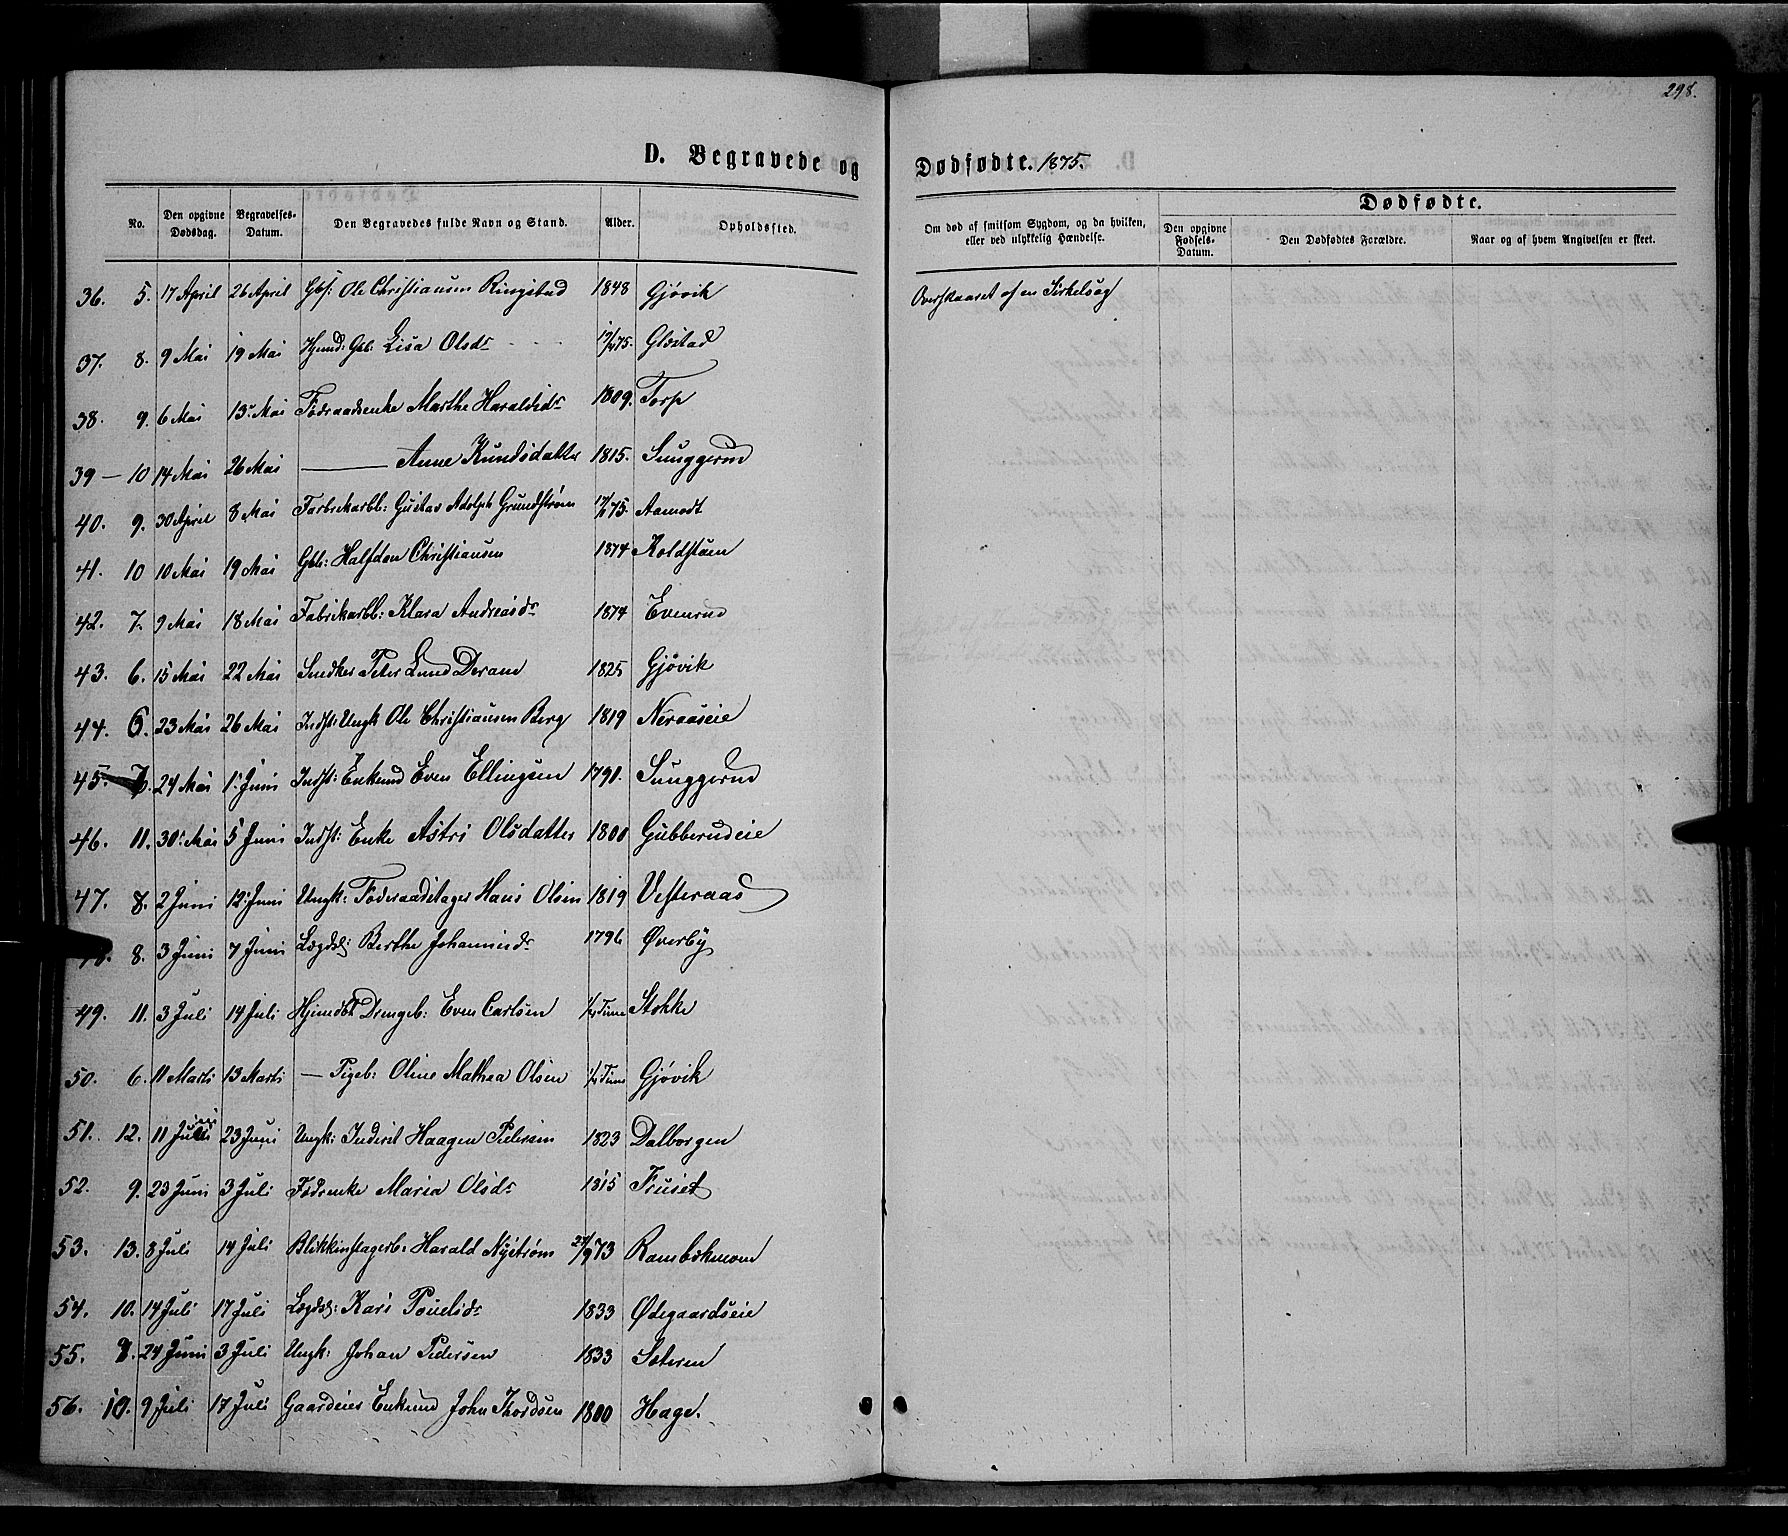 298.
D. Begravede og Dødfødte. 1875.
No. Den opgivne Dødsdag. Begravelses-Datum. Den Begravedes fulde Navn og Stand. Alder. Opholdssted. Om død af smitsom Sygdom, og da hvilken, eller ved ulykkelig Hændelse. Dødfødte.
Den opgivne Fødsels-Datum. Den Dødfødtes Forældre. Naar og af hvem Angivelsen er skeet.
36. 5. 17 April 26 April Gbs: Ole Christiansen Ringstad 1848 Gjøvik Overskaaret af en Sirkelsag
37. 8. 9 Mai 19 Mai Hjemd: Gbl: Lisa Olsdr 75. Glæstad
38. 9. 6 Mai 13 Mai Føderaadsenke Marthe Haraldsdr 1809. Torp
39 — 10 14 Mai 26 Mai —— Anne Knudsdatter 1815. Sunggerud
40. 9. 30 April 8 Mai Fabrikarbb: Gustav Adolph Grundstrøm 75. Aamodt
41. 10 10 Mai 19 Mai Gbb: Halfdan Christiansen 1874 Koldstuen
42. 7. 9 Mai 18 Mai Fabrikarbb: Klara Andreasdr 1874 Evenrud
43. 6. 15 Mai 22 Mai Snedker Peter Lund 1825 Gjøvik
44. 6. 23 Mai 26 Mai Indst: Ungk Ole Christiansen Berg 1819 Neraaseie
45. 7. 24 Mai 1 Juni Indst: Enkemd Even Ellingsen 1791. Sunggerud
46. 11. 30 Mai 5 Juni Indst: Enke Astri Olsdatter 1800 Gubberudeie
47. 8. 2 Juni 12 Juni Ungk: Føderaadstager Hans Olsen 1819 Vesteraas
8. 3 Juni 7 Juni Lægdsl: Berthe Johannesdr 1796 Øverby
49. 11. 3 Juli 14 Juli Hjemdbt Drengeb: Even Carlsen ¼ Time Stokke
50. 6. 11 Marts 13 Marts — Pigeb: Oline Mathea Olsen ¼ Time Gjøvik
51. 12. 11 Juni 23 Juni Ungk: Inderst Haagen Pedersen 1823 Dalborgen
52. 9. 23 Juni 3 Juli Fødrenke Maria Olsdr 1815 Fruset
53. 13. 8 Juli 14 Juli Blikkenslagerb: Harald Nystrøm 24/9 73 Rambekmoen
54. 10. 14 Juli 17 Juli Lægdsl: Kari Pouelsdr 1833 Ødegaardseie
55. 8. 24 Juni 3 Juli Ungk: Johan Pedersen 1833 Sæteren
56. 10. 9 Juli 17 Juli Gaardeier Enkemd John Thordsen 1800 Hage.